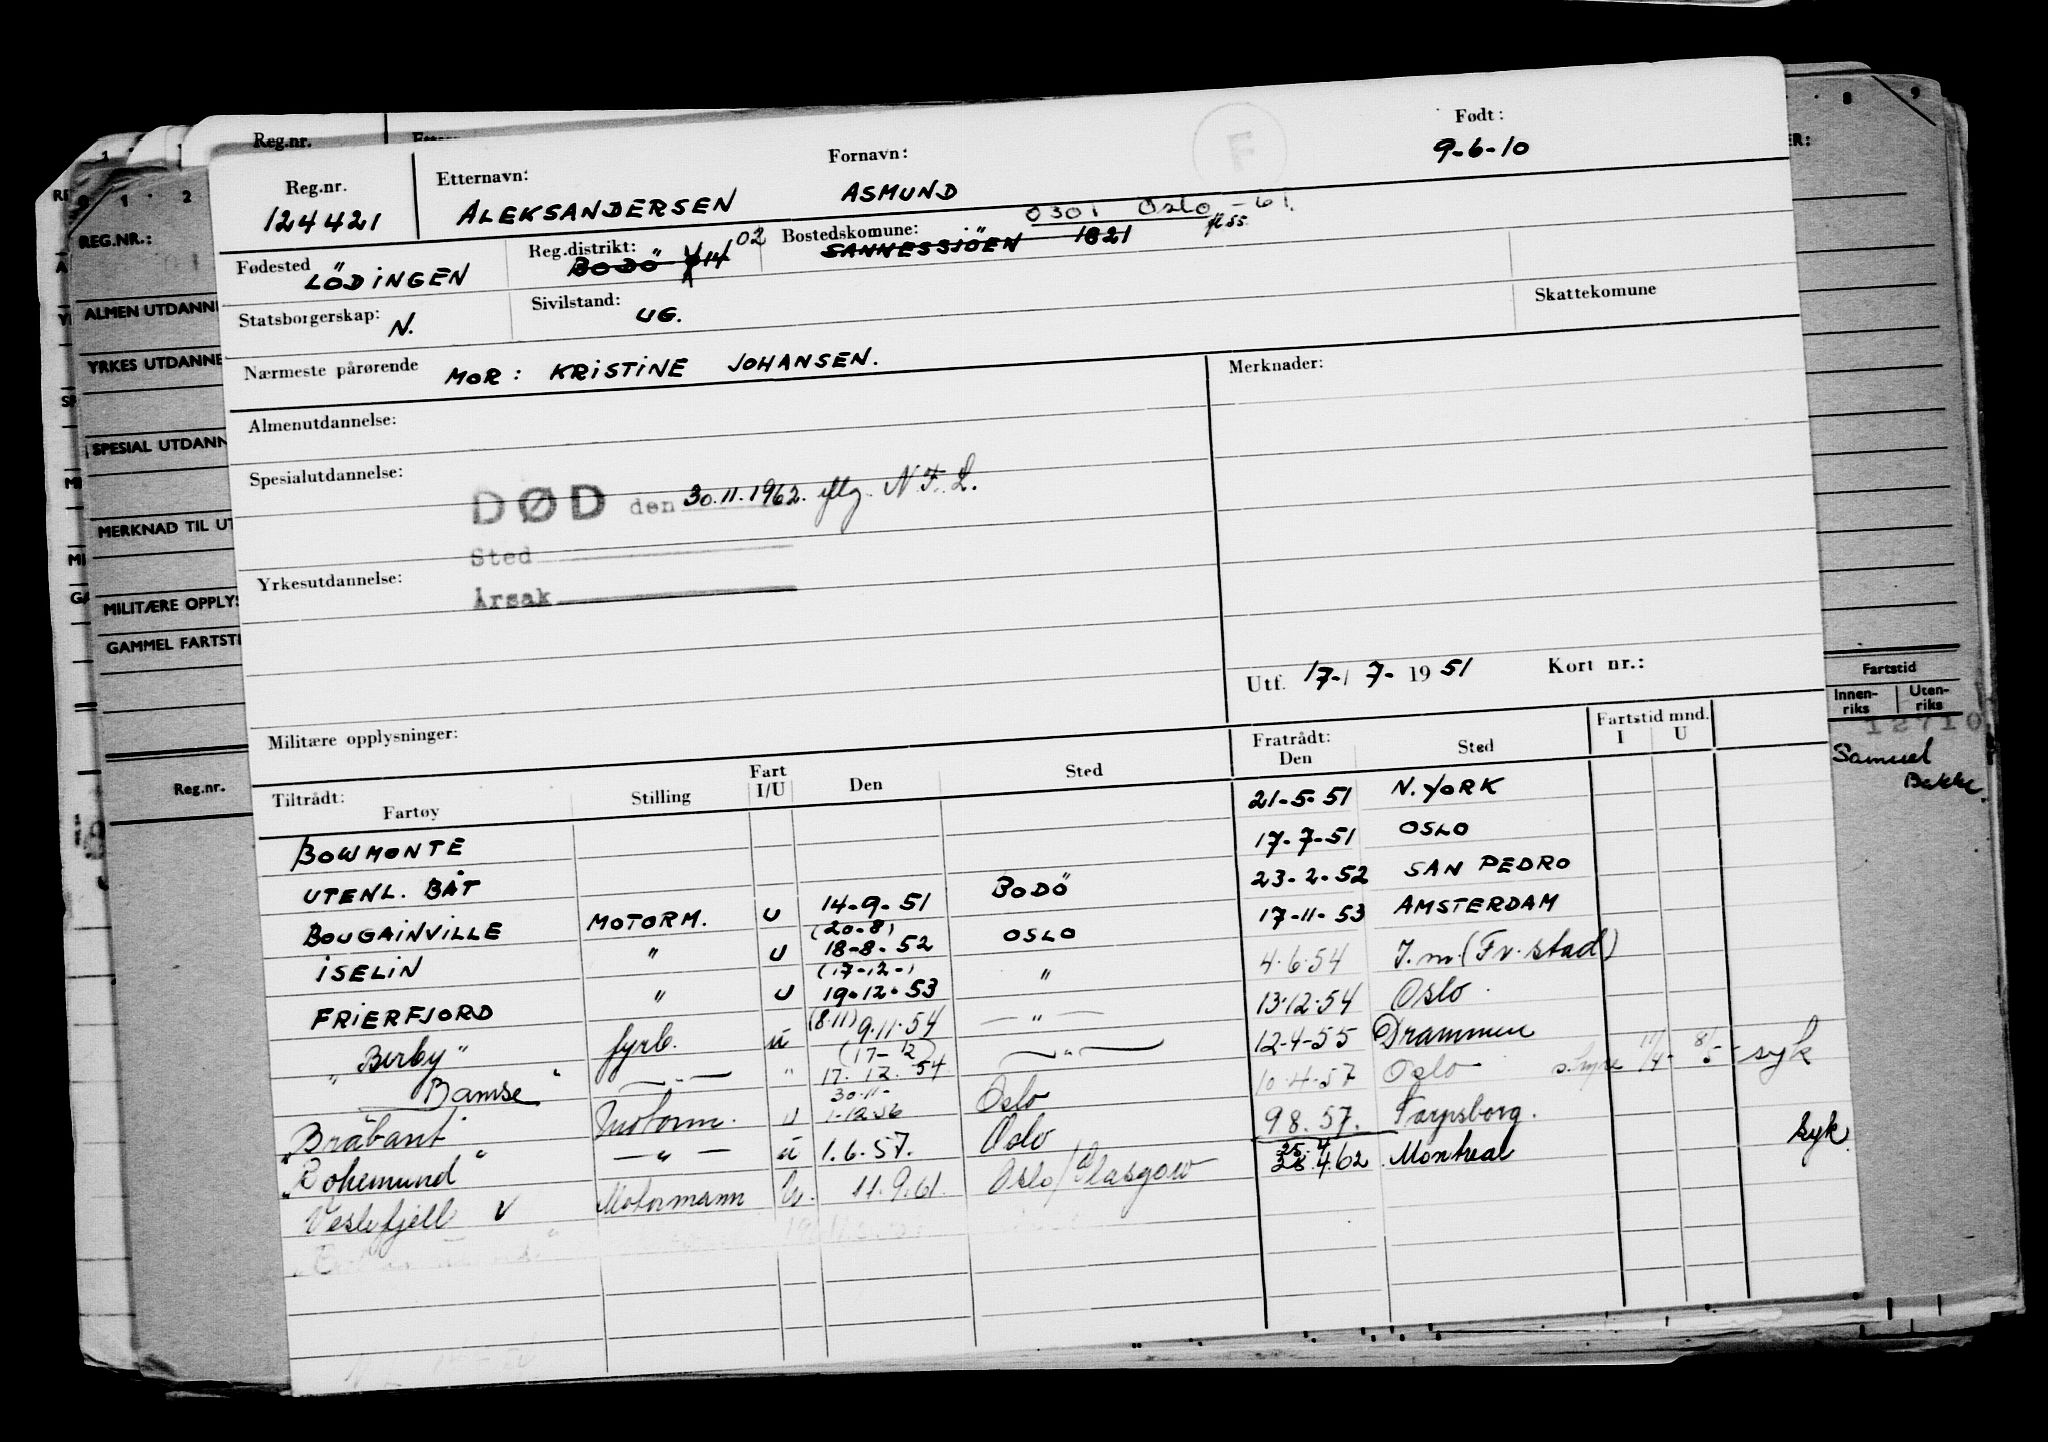 Reg.nr. 124421
Etternavn: ALEKSANDERSEN
Fornavn: ASMUND
F
Født: 9-6-10
Fødested LÖDINGEN
Reg.distrikt: BODÖ 14 02
Bostedskomune: SANNESSJÖEN 1821
0301 Oslo -61.
fl 55
Statsborgerskap: N.
Sivilstand: UG.
Skattekomune
Nærmeste pårørende MOR: KRISTINE JOHANSEN.
Merknader:
Almenutdannelse:
Spesialutdannelse:
DØD den 30.11.1962. iflg. N.F.L.
Sted
Årsak
Yrkesutdannelse:
Utf. 17-7-1951 Kort nr.:
Militære opplysninger:
Tiltrådt: Fartøy Stilling Fart I/U Den Sted Fratrådt: Den Sted Fartstid mnd. I U
BOWMONTE 21-5-51 N.YORK
UTENL. BÅT 17-7-51 OSLO
BOUGAINVILLE MOTORM. U 14-9-51 BODÖ 23-2-52 SAN PEDRO
ISELIN " U (20-8) 18-8-52 OSLO 17-11-53 AMSTERDAM
FRIERFJORD " U (17-12-) 19-12-53 " 4.6.54 T.m. (Fr.stad)
"Berby" fyrb. u (8.11) 9.11.54 — " — 13.12.54 Oslo.
"Bamse" — " — " (17-12) 17.12.54 — " — 12-4-55 Drammen
"Brabant" Motorm. U 30.11- 1-12 56 Oslo 10.4.57 Oslo 11/4- 8/5- syk
"Bohemund" — " — u 1.6.57. Oslo 9 8. 57. Sarpsborg.
Veslefjell V Motormann U. 11.9.61. Oslo/Glasgow 25.4 28.4.62 Montreal syk
Reg.nr.
RE
REG.NR.:
ALMEN UTDANNE
YRKES UTDANNE
SPESIAL UTDANN
MERKNAD TIL UT
MILITÆRE OPPLYS
GAMMEL FARTSTI
Reg.nr.
1 2
8 9
Fartstid
Innenriks Utenriks
12710
Samuel
Bakke.